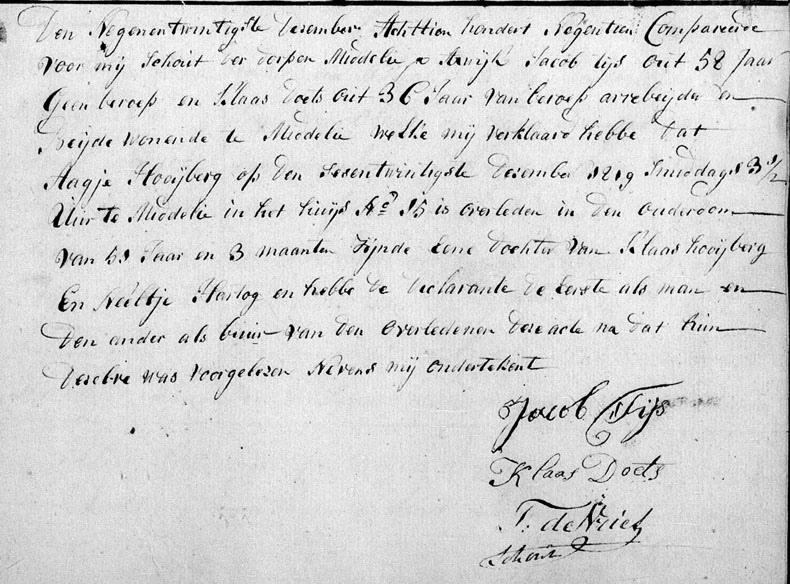 Den Negenentwintigste Desember Achttien hondert Negentien Compareerde
voor mij Schout der dorpen Middelie & Axwijk Jacob tijs out 52 Jaar
Geen beroep en Klaas Doets out 36 Jaar van beroep arrebeijder en
Beijde wonende te Middelie welke mij verklaard hebbe dat
Aagje Hooijberg op den Sesentwintigste Desember 1819 Smiddags 3 1/2
Uur te Middelie in het huijs No 15 is overleden in den ouderdom
van 51 Jaar en 3 maanten zijnde eene dochter van Klaas hooijberg
En Neeltje Hartog en hebbe de declarante de eerste als man en
Den ander als buur van den overledenen dese acte na dat hun
deselve was voorgelesen Nevens mij ondertekent
Jacob Tijs
Klaas Doets
de Vriet
Schout